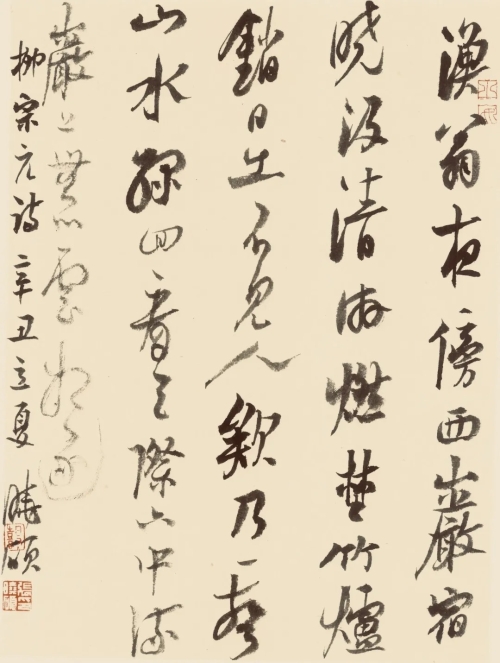 漁翁夜傍西巖宿
曉汲清湘燃楚竹爐
銷日出不見人欸乃一聲
山水綠回看天際下中流
巖上無心雲相逐
柳宗元詩辛丑立夏